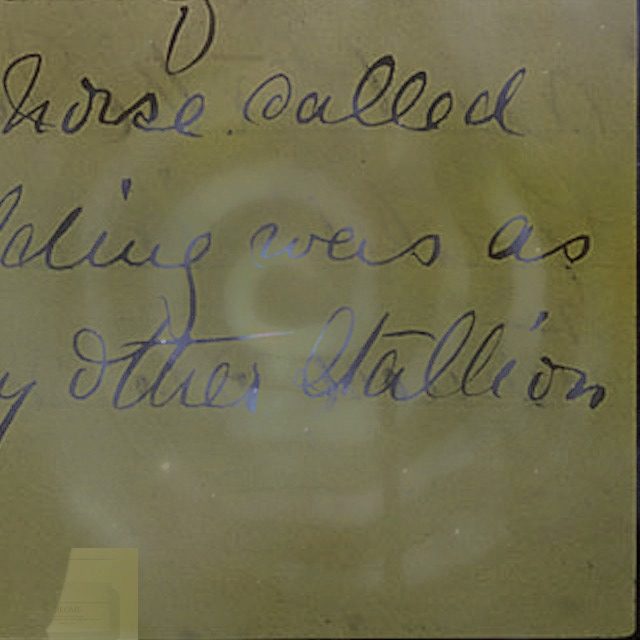 horse called
was as
other Stallion